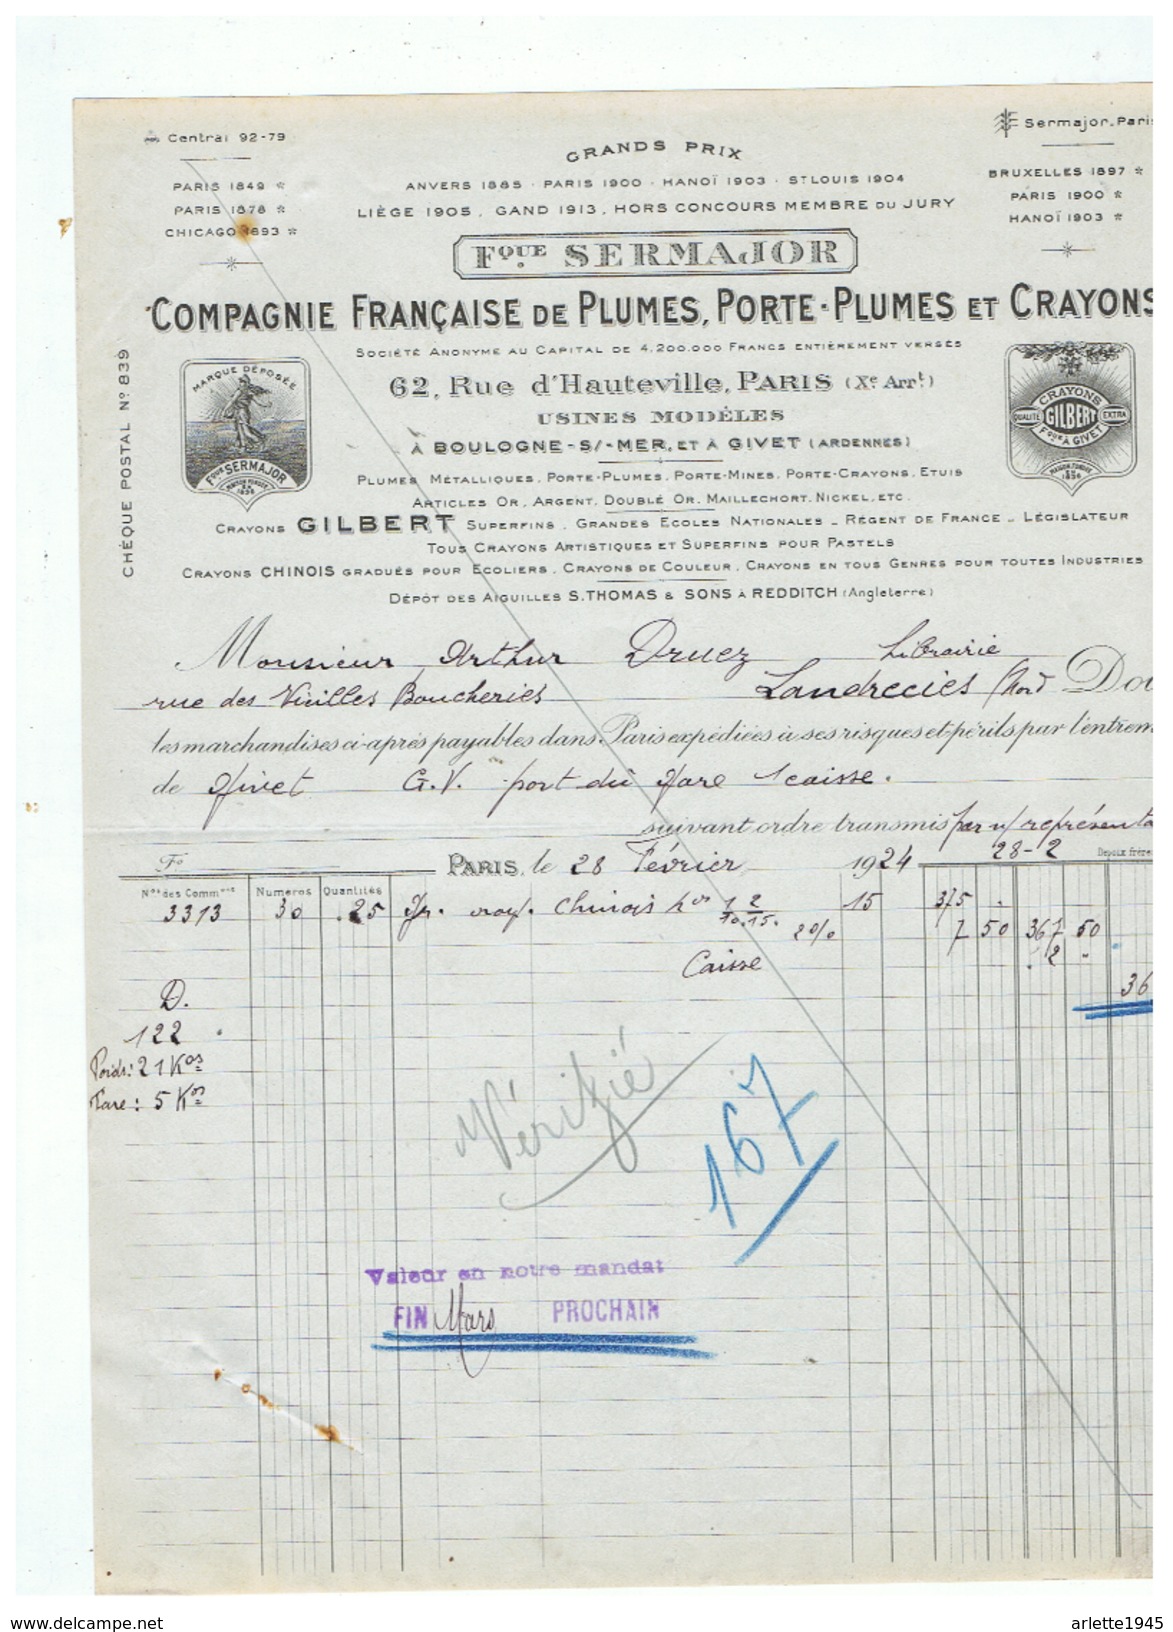 Central 92-79
PARIS 1849 *
PARIS 1878 *
CHICAGO 1893 *
GRANDS PRIX
ANVERS 1885 . PARIS 1900 . HANOÏ 1903 . ST LOUIS 1904
LIÈGE 1905, GAND 1913, HORS CONCOURS MEMBRE DU JURY
Sermajor.Paris
BRUXELLES 1897 *
PARIS 1900 *
HANOÏ 1903 *
FQUE SERMAJOR
COMPAGNIE FRANÇAISE DE PLUMES, PORTE-PLUMES ET CRAYONS
SOCIÉTÉ ANONYME AU CAPITAL DE 4.200.000 FRANCS ENTIÈREMENT VERSÉS
62, Rue d'Hauteville, PARIS (Xe Arrt)
USINES MODÈLES
À BOULOGNE-S/-MER, ET À GIVET (ARDENNES)
CHÈQUE POSTAL No 839
MARQUE DÉPOSÉE
FQUE SERMAJOR
MAISON FONDÉE EN
1856
CRAYONS
QUALITÉ GILBERT EXTRA
FQUE À GIVET
MAISON FONDÉE EN
1856
PLUMES MÉTALLIQUES, PORTE-PLUMES, PORTE-MINES, PORTE-CRAYONS, ETUIS
ARTICLES OR, ARGENT, DOUBLÉ OR, MAILLECHORT, NICKEL, ETC.
CRAYONS GILBERT SUPERFINS . GRANDES ECOLES NATIONALES _ RÉGENT DE FRANCE _ LÉGISLATEUR
TOUS CRAYONS ARTISTIQUES ET SUPERFINS POUR PASTELS
CRAYONS CHINOIS GRADUÉS POUR ECOLIERS . CRAYONS DE COULEUR . CRAYONS EN TOUS GENRES POUR TOUTES INDUSTRIES
DÉPÔT DES AIGUILLES S.THOMAS & SONS À REDDITCH (Angleterre)
Monsieur Arthur Druez Librairie
rue des Vieilles Boucheries Landrecies (Nord Doi
les marchandises ci-après payables dans Paris expédiées à ses risques et périls par l'entrem
de Givet G.V. port dû Gare 1 caisse.
suivant ordre transmis par n/ représenta
28-2
Fo PARIS, le 28 Février 1924
Nos des Commnes Numéros Quantités
3313 30 25 Gr. cray. Chinois hor 1/10. 2/15. 15 375 .
2% 7 50 367 50
Caisse 2 .
36
D.
122
Poids: 21 Kos
Tare: 5 Kos
Vérifié
167
Valeur en notre mandat
FIN Mars PROCHAIN
www.delcampe.net
arlette1945